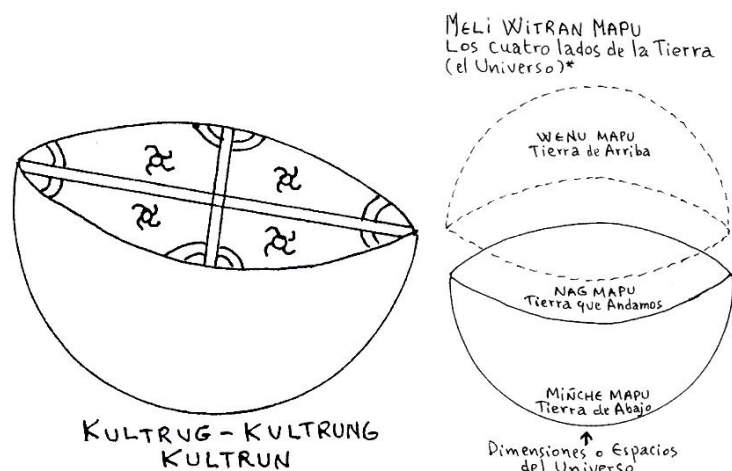 KULTRUG - KULTRUNG
KULTRUN
MELI WITRAN MAPU
Los cuatro lados de la Tierra
(el Universo)*
WENU MAPU
Tierra de Arriba
NAG MAPU
Tierra que Andamos
MIÑCHE MAPU
Tierra de Abajo
↑
Dimensiones o Espacios
del Universo